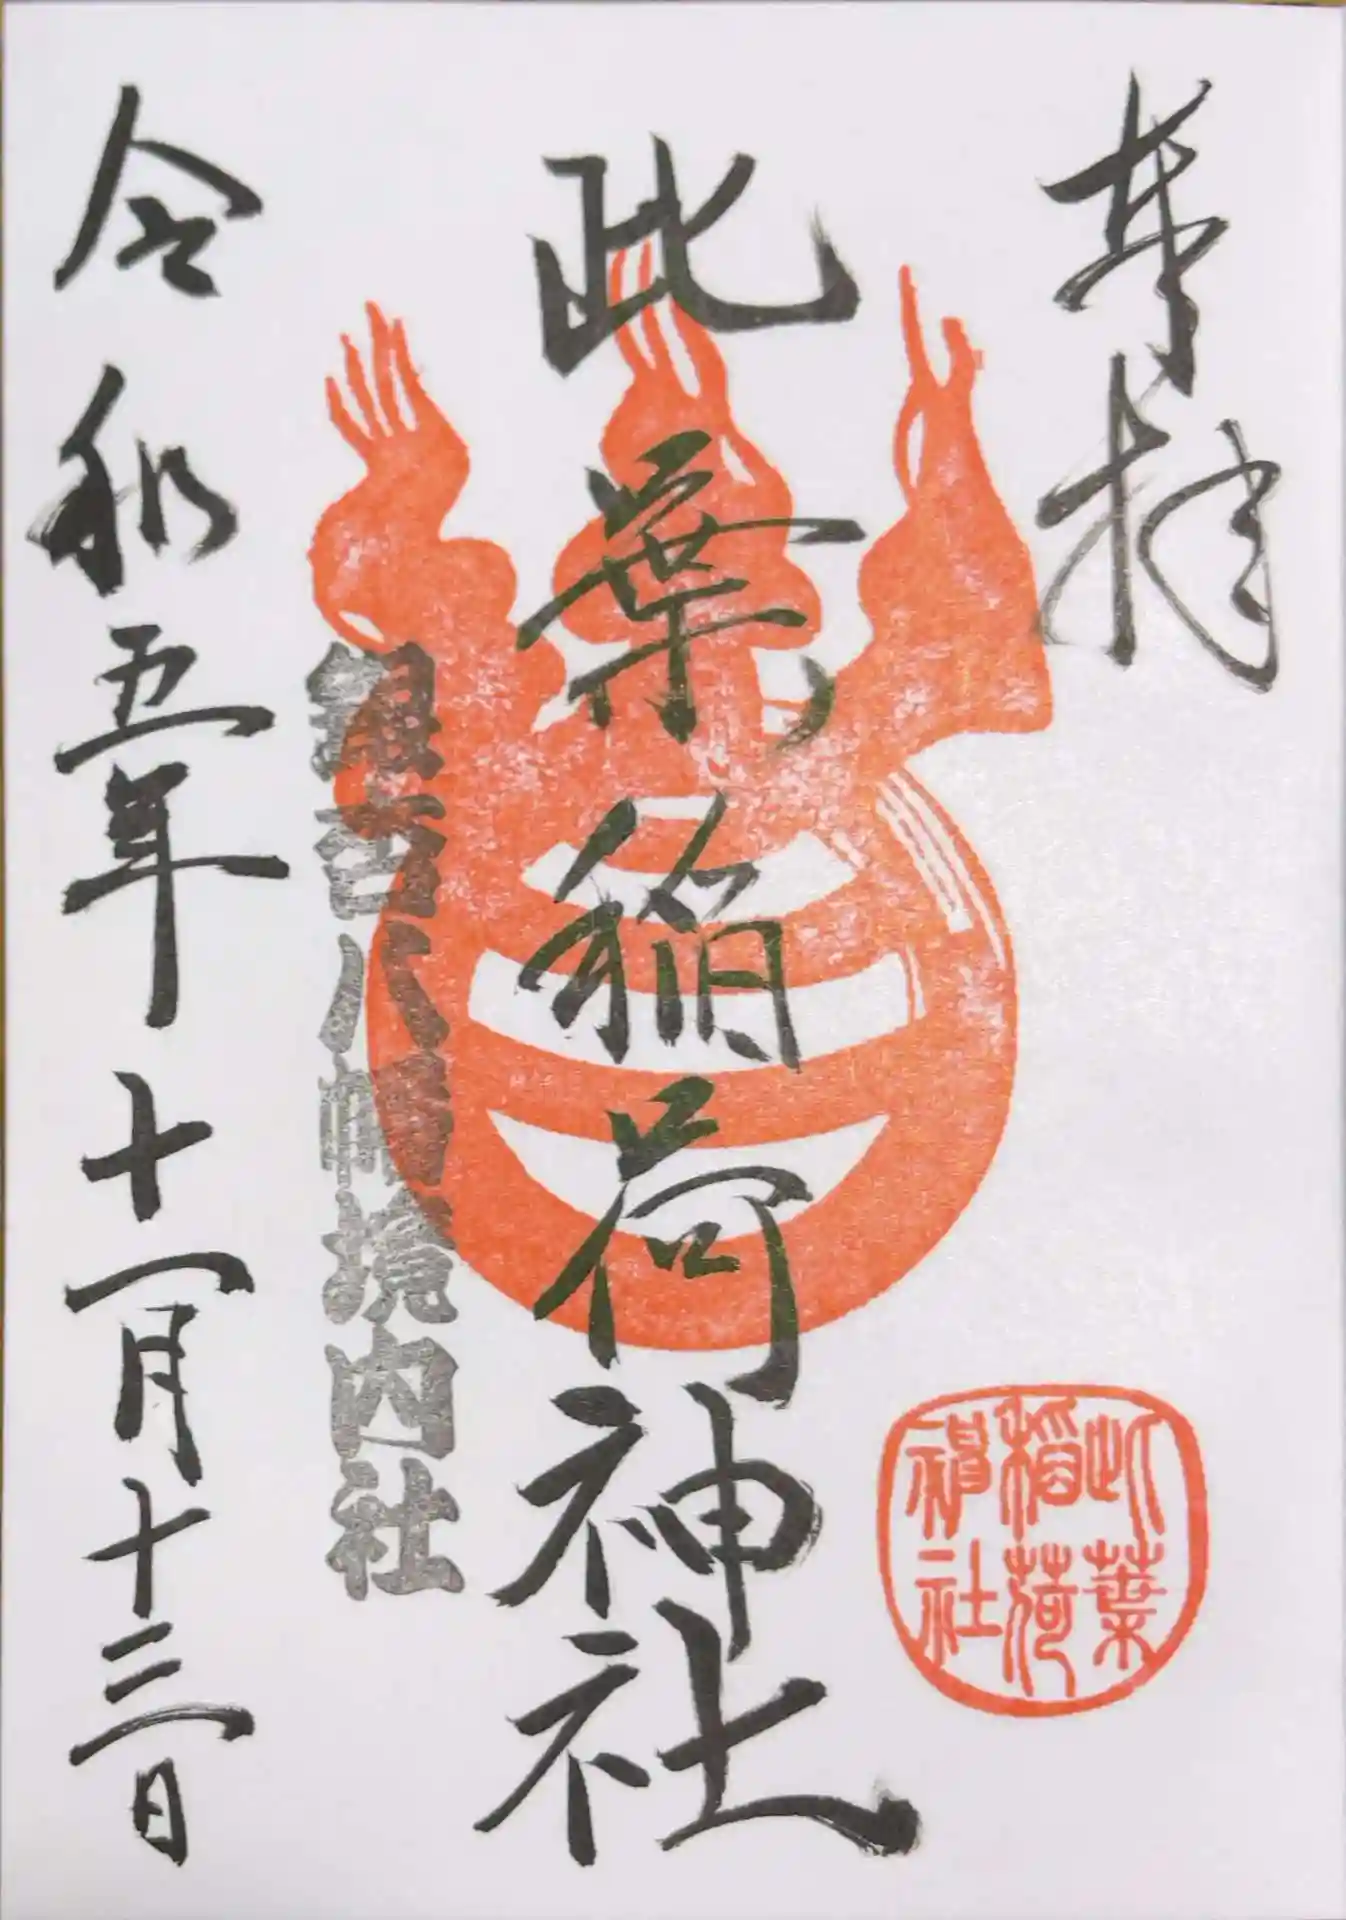 奉拝
此葉稲荷神社
銀杏八幡境内社
令和五年十一月十三日
此葉
稲荷
神社